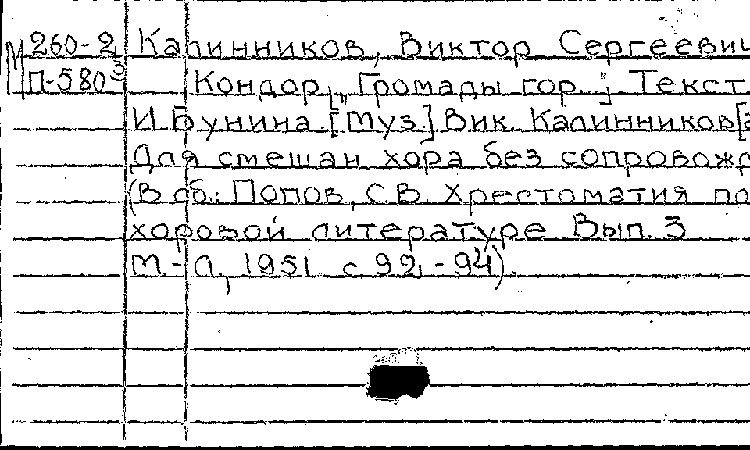 М 260-2 Калинников, Виктор Сергеевич
П-580³ Кондор „Громады гор..." Текст
И Бунина [Муз] Вик. Калинников[а
Для смешан хора без сопровожд
(В сб.: Попов, С В. Хрестоматия по
хоровой литературе Вып. 3
М-Л, 1951 с 92-94).